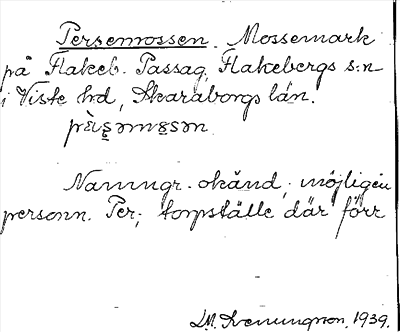 Persemossen. Mossemark
på Flakeb. Passag, Flakebergs s:n
i Viste hd, Skaraborgs län.
Namngr. okänd; möjligen
personn. Per; torpställe där förr
Svenungson, 1939.